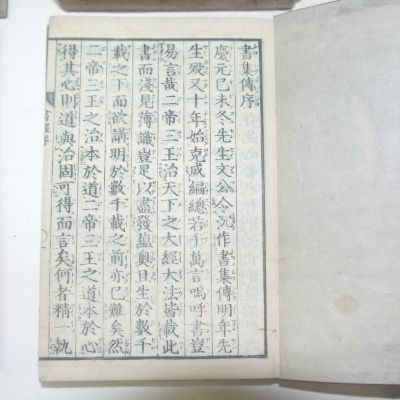 書集傳序
慶元己未冬先生文公令沈作書集傳明年先
生歿又十年始克成編總若干萬言嗚呼書豈
易言哉二帝三王治天下之大經大法皆載此
書而淺見薄識豈足以盡發蘊奧且生於數千
載之下而欲講明於數千載之前亦已難矣然
二帝三王之治本於道二帝三王之道本於心
得其心則道與治固可得而言矣何者精一執
書經序